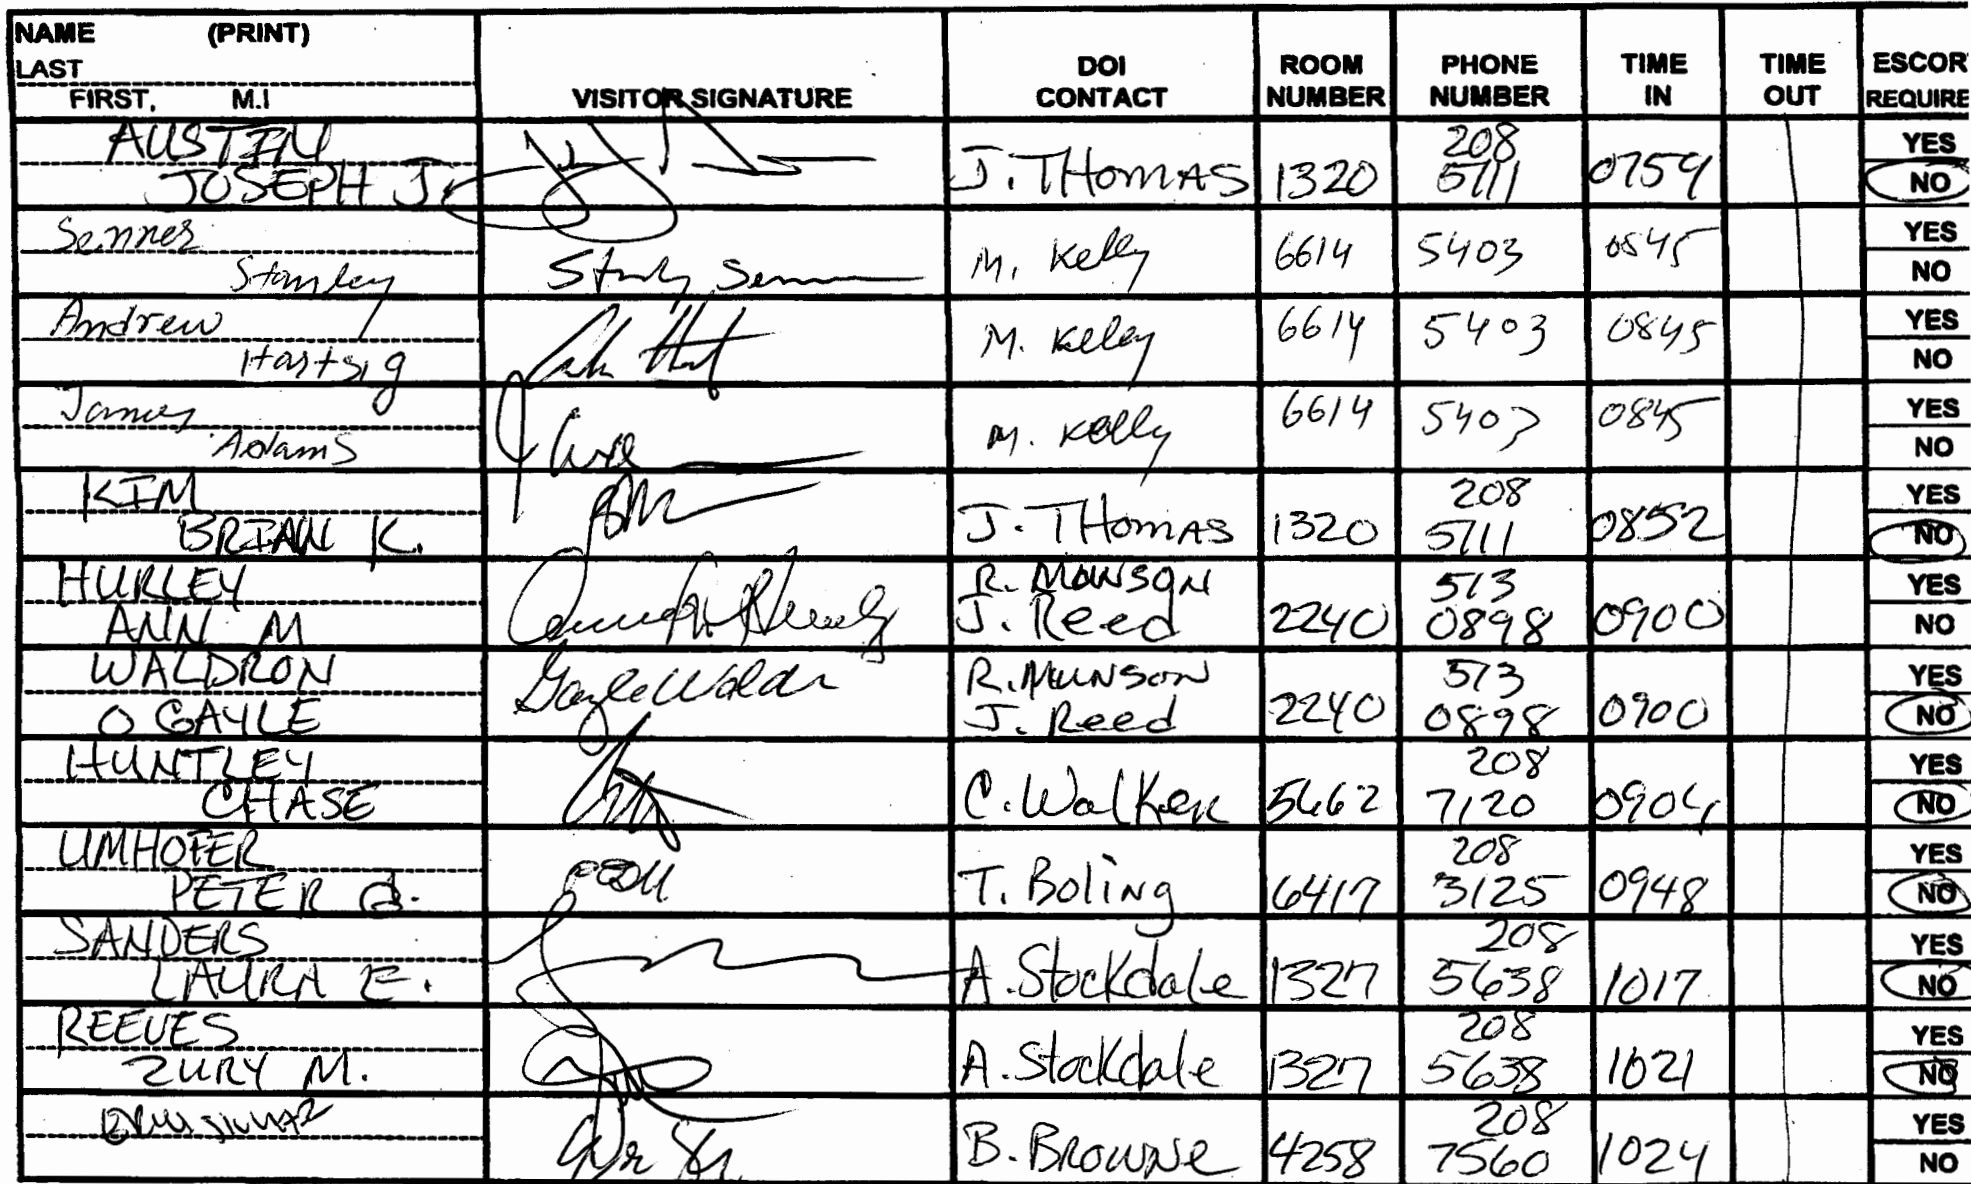 NAME (PRINT)
LAST
FIRST, M.I
VISITOR SIGNATURE
DOI CONTACT
ROOM NUMBER
PHONE NUMBER
TIME IN
TIME OUT
ESCOR
REQUIRE
AUSTIN
JOSEPH J.
J. THOMAS 1320 208 5711 0759 YES NO
Senner
Stanley
M. Kelly 6614 5403 0845 YES NO
Andrew
Hartsig
M. Kelly 6614 5403 0845 YES NO
James
Adams
M. Kelly 6614 5403 0845 YES NO
KIM
BRIAN K.
J. THOMAS 1320 208 5711 0852 YES NO
HURLEY
ANN M
R. MUNSON
J. Reed 2240 513 0898 0900 YES NO
WALDRON
O GAYLE
Gayle Waldr
R. MUNSON
J. Reed 2240 513 0898 0900 YES NO
HUNTLEY
CHASE
C. Walker 5662 208 7120 0904 YES NO
UMHOFER
PETER
T. Boling 6417 208 3125 0948 YES NO
SANDERS
LAURA E.
A. Stockdale 1327 208 5638 1017 YES NO
REEVES
ZURY M.
A. Stockdale 1327 208 5638 1021 YES NO
B. BROWNE 4258 208 7560 1024 YES NO